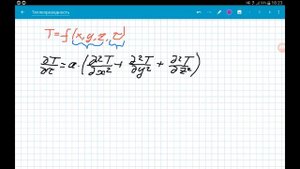 Теплопроводность
10:23
T = f(x, y, z, τ)
∂T/∂τ = a · (∂²T/∂x² + ∂²T/∂y² + ∂²T/∂z²)